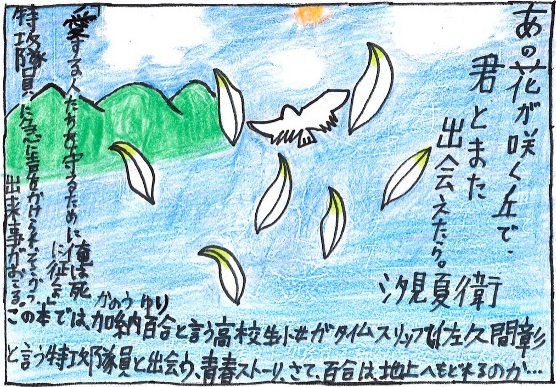 あの花が咲く丘で、
君とまた
出会えたら。
汐見夏衛
「愛する人たちを守るために俺は死
に征く」
特攻隊員に急に声をかけられ、
出来事がおこる
かのう ゆり
この本では、加納百合と言う高校生がタイムスリップ佐久間彰
と言う特攻隊員と出会う、青春ストーリ、さて、百合は地上へもどれるのか…